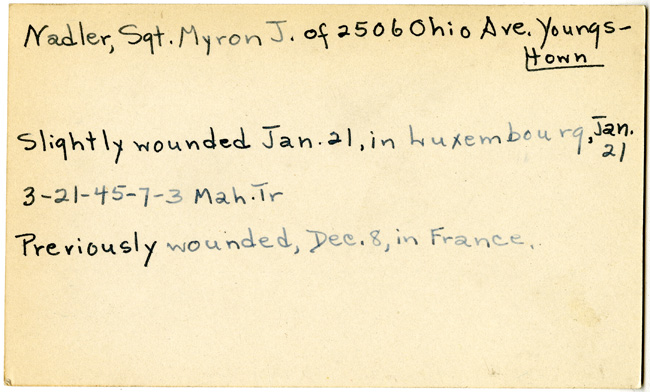 Nadler, Sgt. Myron J. of 2506 Ohio Ave. Youngs-
town
Slightly wounded Jan. 21, in Luxembourg, Jan.
21
3-21-45-7-3 Mah. Tr
Previously wounded, Dec. 8, in France.